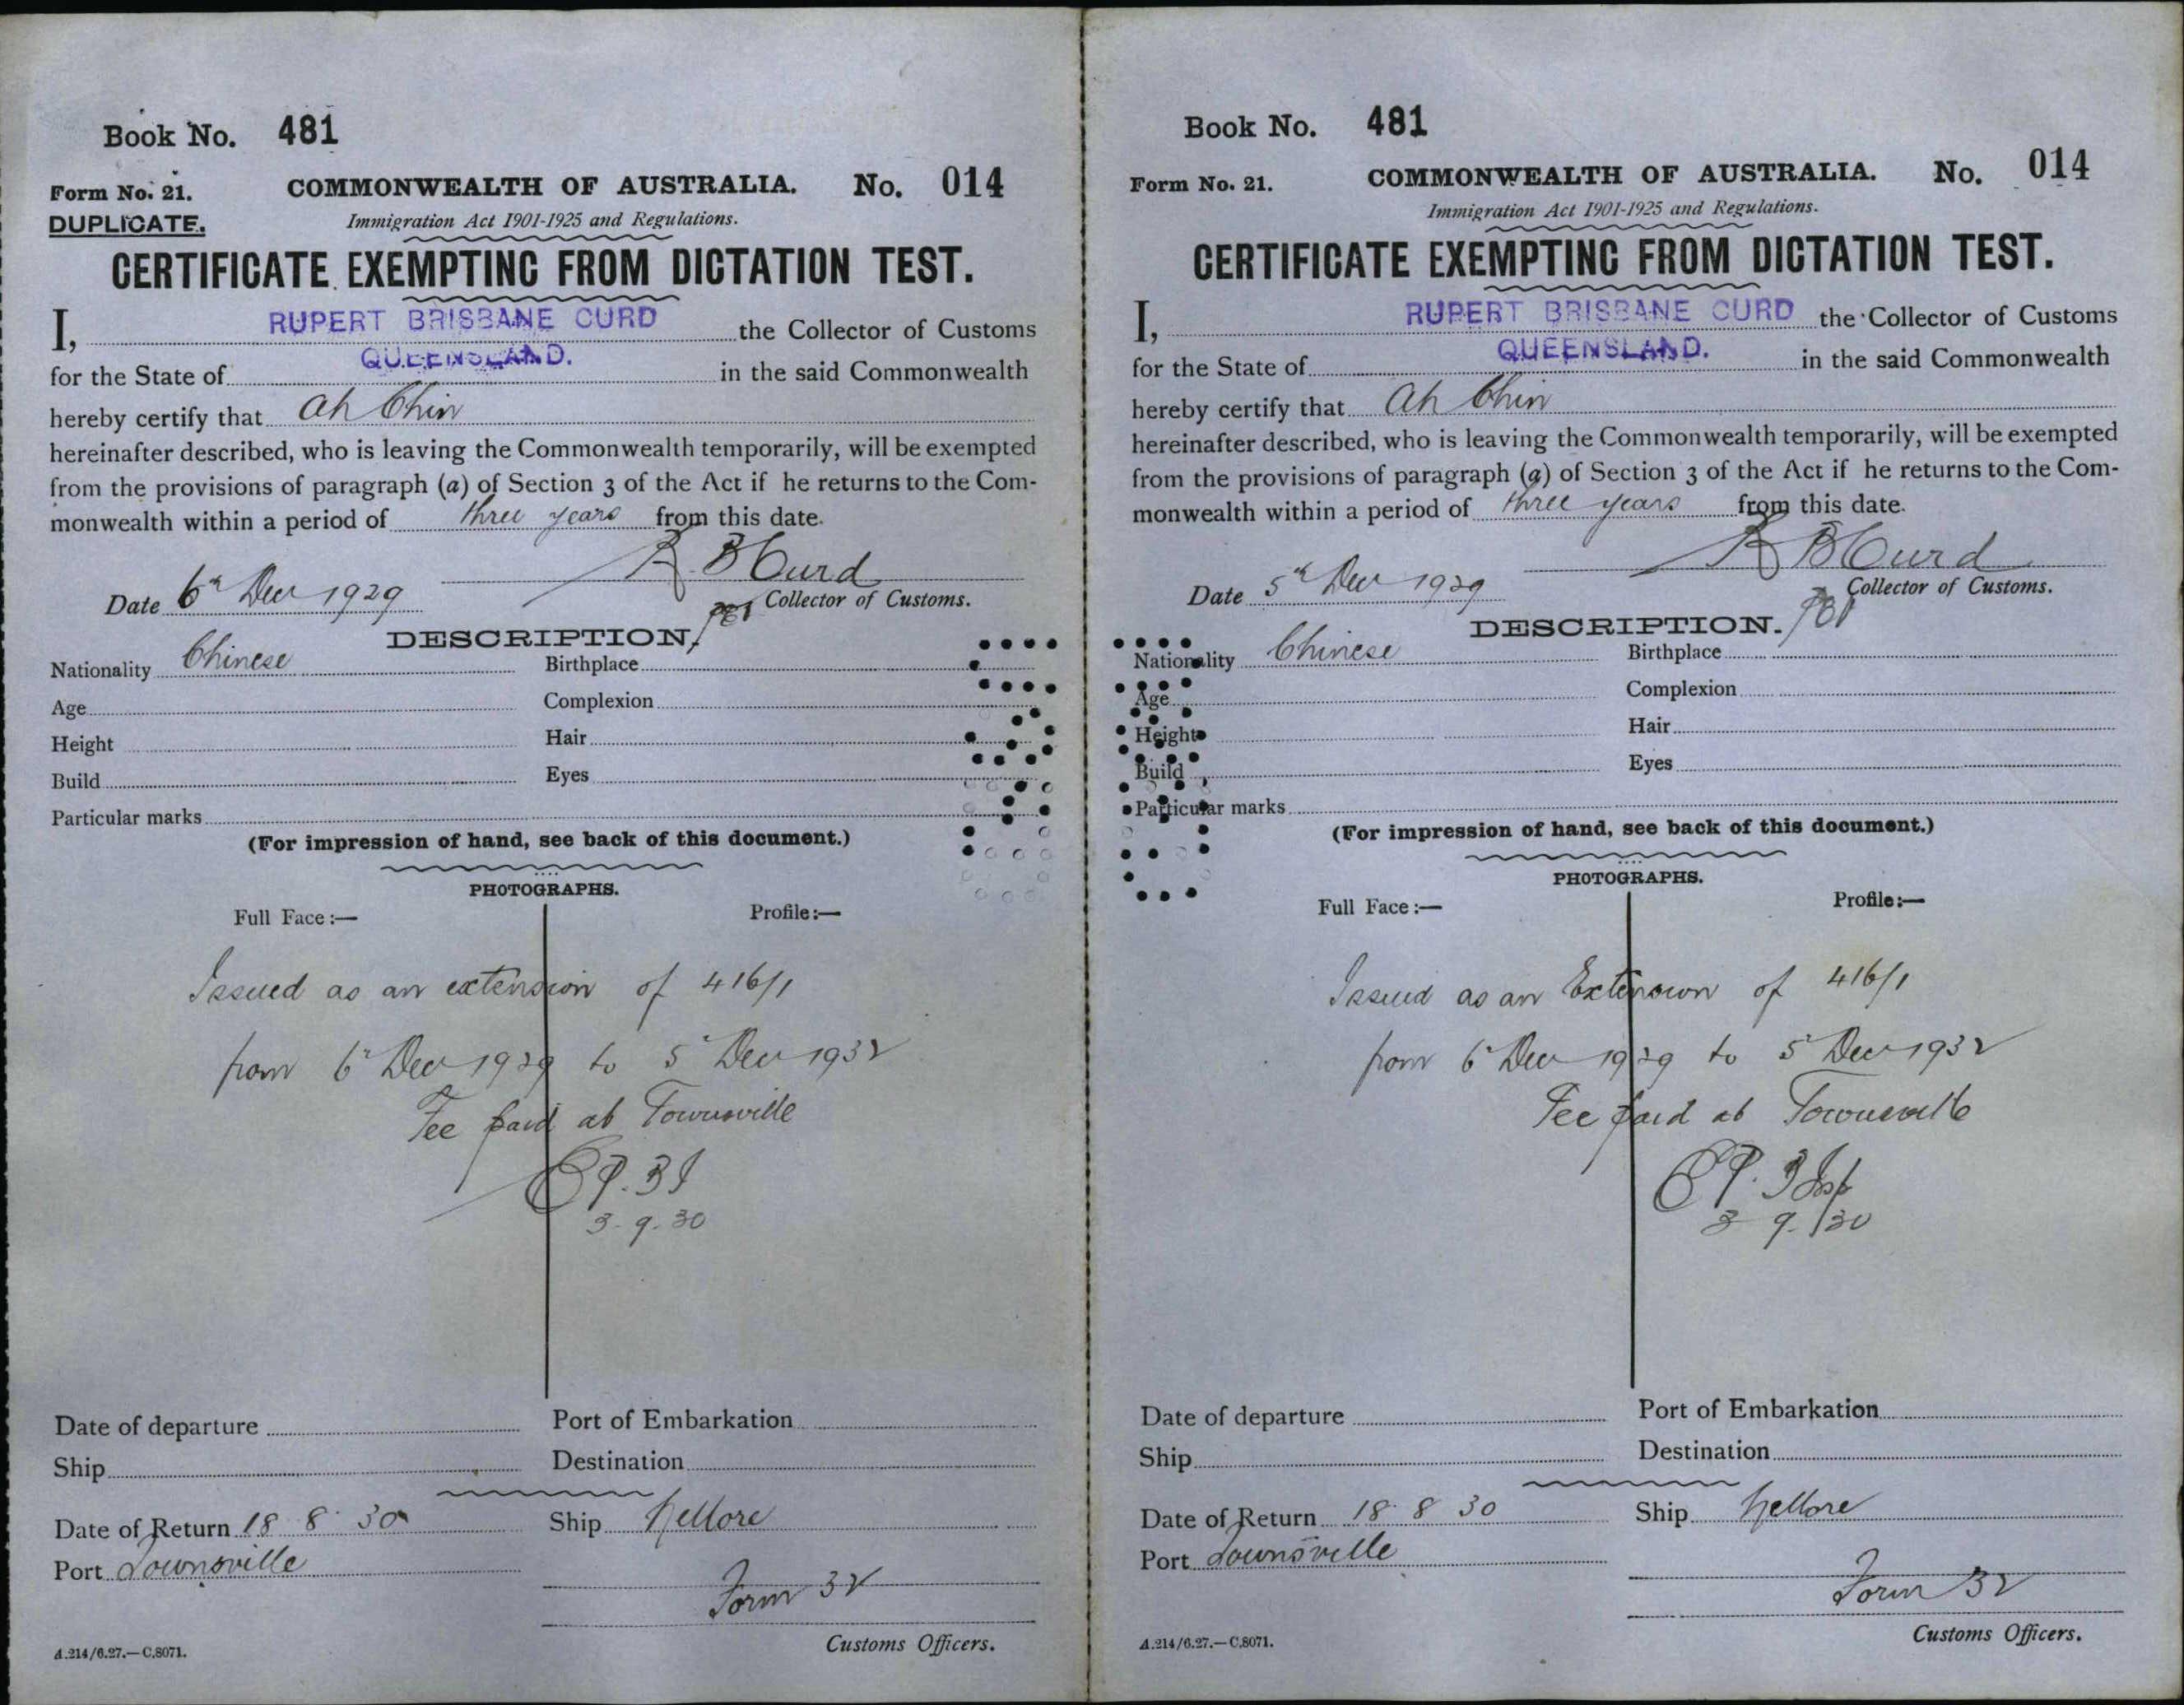 Book No. 481
Form No. 21. COMMONWEALTH OF AUSTRALIA. No. 014
DUPLICATE. Immigration Act 1901-1925 and Regulations.
CERTIFICATE EXEMPTING FROM DICTATION TEST.
I, RUPERT BRISBANE CURD the Collector of Customs
for the State of QUEENSLAND. in the said Commonwealth
hereby certify that Ah Chin
hereinafter described, who is leaving the Commonwealth temporarily, will be exempted
from the provisions of paragraph (a) of Section 3 of the Act if he returns to the Com-
monwealth within a period of three years from this date.
R B Curd
Date 6th Dec 1929 Collector of Customs.
DESCRIPTION.
Nationality Chinese Birthplace
Age Complexion
Height Hair
Build Eyes
Particular marks
(For impression of hand, see back of this document.)
PHOTOGRAPHS.
Full Face:— Profile:—
Issued as an extension of 416/1
from 6 Dec 1929 to 5 Dec 1932
Fee paid at Townsville
3.9.30
Date of departure Port of Embarkation
Ship Destination
Date of Return 18 8 30 Ship Nellore
Port Townsville
Form 32
Customs Officers.
A.214/6.27.—C.8071.
Book No. 481
Form No. 21. COMMONWEALTH OF AUSTRALIA. No. 014
Immigration Act 1901-1925 and Regulations.
CERTIFICATE EXEMPTING FROM DICTATION TEST.
I, RUPERT BRISBANE CURD the Collector of Customs
for the State of QUEENSLAND. in the said Commonwealth
hereby certify that Ah Chin
hereinafter described, who is leaving the Commonwealth temporarily, will be exempted
from the provisions of paragraph (a) of Section 3 of the Act if he returns to the Com-
monwealth within a period of three years from this date.
R B Curd
Date 5th Dec 1929 Collector of Customs.
DESCRIPTION.
Nationality Chinese Birthplace
Age Complexion
Height Hair
Build Eyes
Particular marks
(For impression of hand, see back of this document.)
PHOTOGRAPHS.
Full Face:— Profile:—
Issued as an Extension of 416/1
from 6 Dec 1929 to 5 Dec 1932
Fee paid at Townsville
3 9 30
Date of departure Port of Embarkation
Ship Destination
Date of Return 18 8 30 Ship Nellore
Port Townsville
Form 32
Customs Officers.
A.214/6.27.—C.8071.